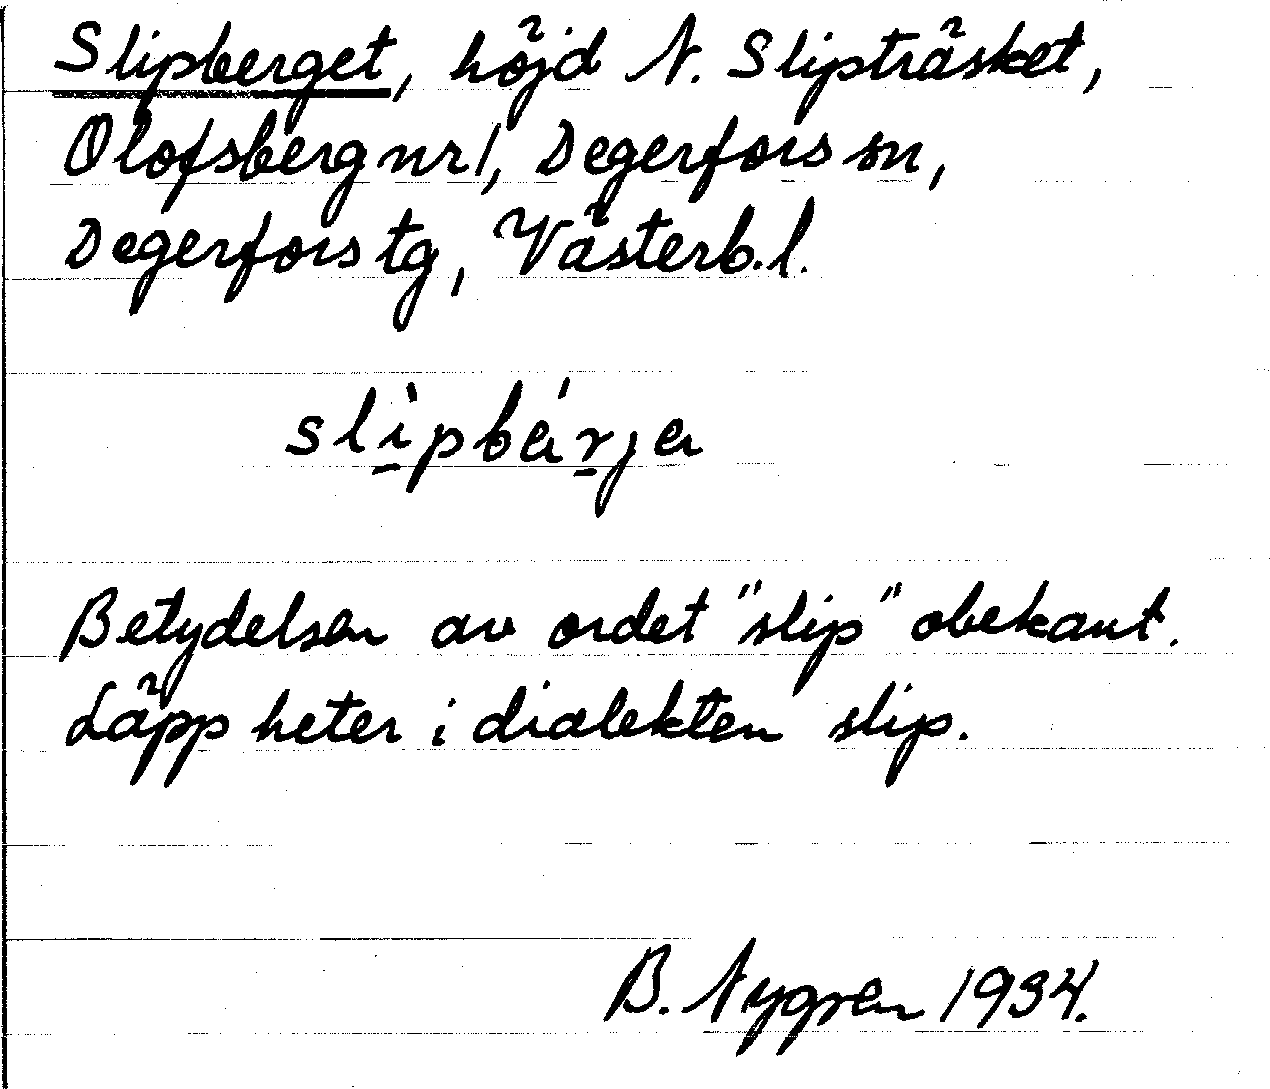 Slipberget, höjd N. Slipträsket,
Olofsberg nr 1, Degerfors sn,
Degerfors tg, Västerb. l.
slìpbárja
Betydelsen av ordet "slip" obekant.
Läpp heter i dialekten slip.
B. Nygren 1934.